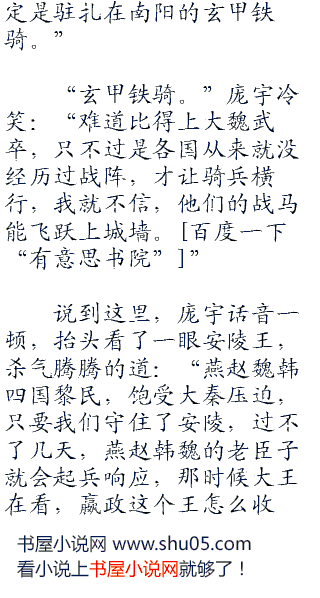 定是驻扎在南阳的玄甲铁
骑。”
“玄甲铁骑。”庞宇冷
笑：“难道比得上大魏武
卒，只不过是各国从来就没
经历过战阵，才让骑兵横
行，我就不信，他们的战马
能飞跃上城墙。[百度一下
“有意思书院”]”
说到这里，庞宇话音一
顿，抬头看了一眼安陵王，
杀气腾腾的道：“燕赵魏韩
四国黎民，饱受大秦压迫，
只要我们守住了安陵，过不
了几天，燕赵韩魏的老臣子
就会起兵响应，那时候大王
在看，嬴政这个王怎么收
书屋小说网 www.shu05.com
看小说上书屋小说网就够了！